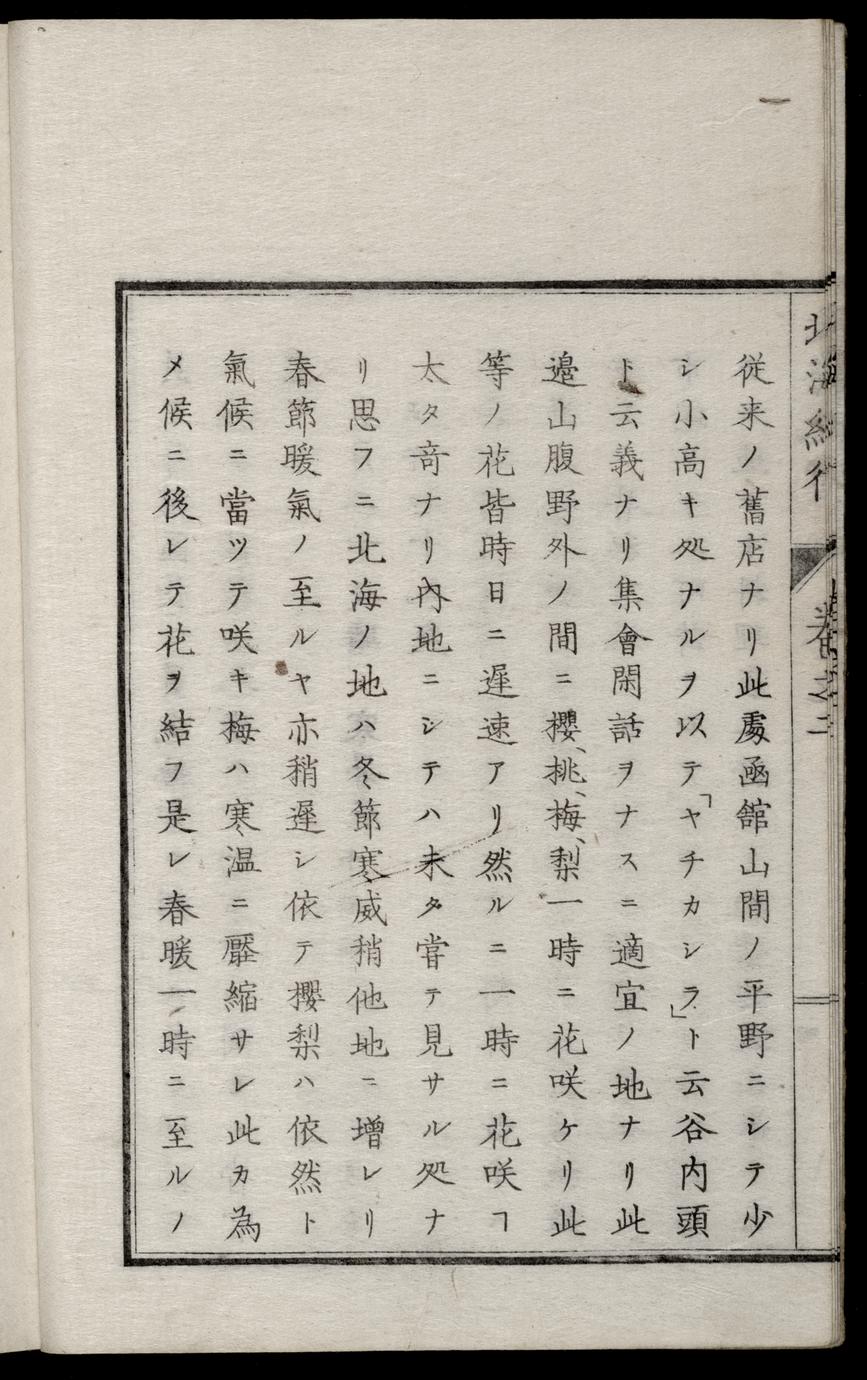 北海紀行
巻之二
従来ノ舊店ナリ此處凾舘山間ノ平野ニシテ少
シ小高キ処ナルヲ以テ「ヤチカシラ」ト云谷内頭
ト云義ナリ集會閑話ヲナスニ適宜ノ地ナリ此
邉山腹野外ノ間ニ櫻、桃、梅、梨一時ニ花咲ケリ此
等ノ花皆時日ニ遲速アリ然ルニ一時ニ花咲ヿ
太タ竒ナリ內地ニシテハ未タ嘗テ見サル処ナ
リ思フニ北海ノ地ハ冬節寒威稍他地ニ增レリ
春節暖氣ノ至ルヤ亦稍遲シ依テ櫻梨ハ依然ト
氣候ニ當ツテ咲キ梅ハ寒温ニ壓縮サレ此カ為
メ候ニ後レテ花ヲ結フ是レ春暖一時ニ至ルノ